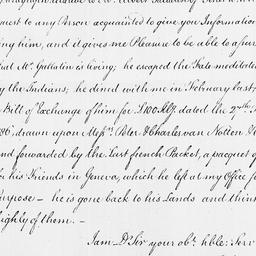 quest to any Person acquainted to give you Information
ing him, and it gives me Pleasure to be able to assure
that Mr. Gallatin is living; he escaped the Fate meditated
by the Indians; he dined with me in February last;
Bill of Exchange of him for dated the 27th
drawn upon Messrs. Peter & Charles van Notten
and forwarded by the Last french Packet, a pacquet of
for his Friends in Geneva, which he left at my Office for
Purpose — he is gone back to his Lands and think
highly of them. —
I am Dr. Sir your obt. hble. Serv